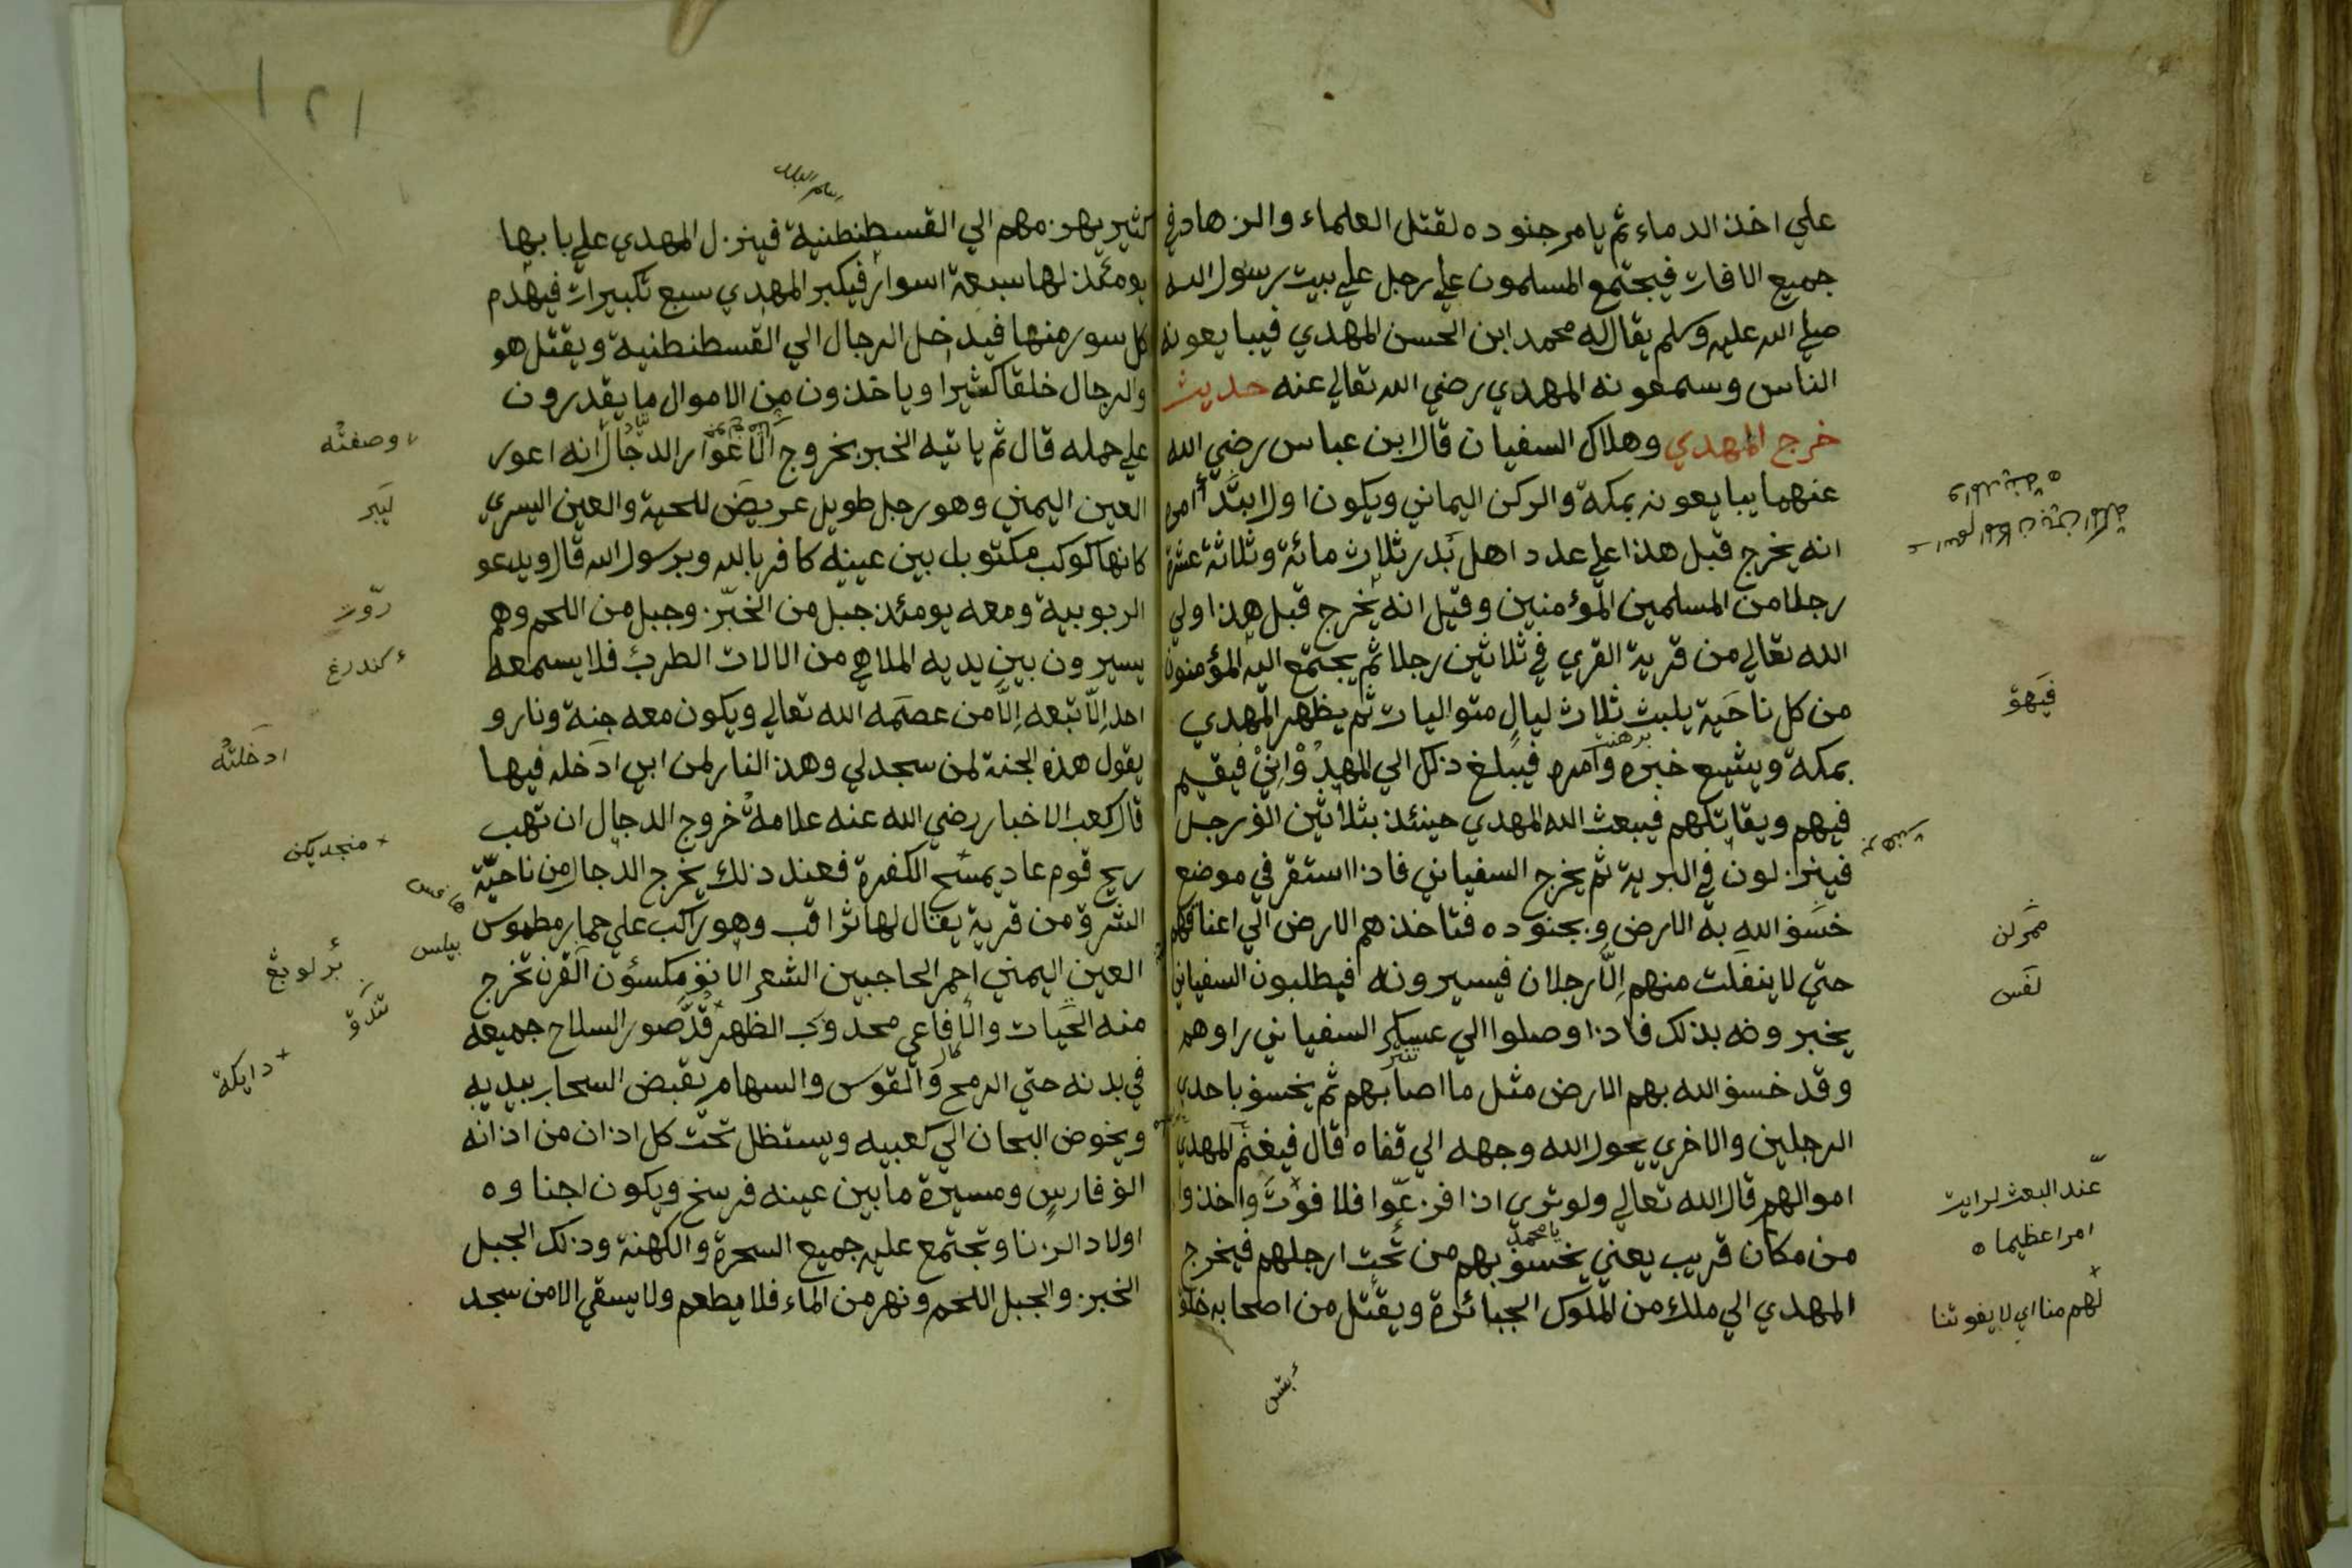 علي اخذ الدماء ثم يامر جنوده لقتل العلماء والزهاد في
جميع الافات فيجتمع المسلمون علي رجل علي بيت رسول الله
صلي الله عليه وسلم يقال له محمد ابن الحسن المهدي فيبايعونه
الناس وسمعونه المهدي رضي الله تعالي عنه حديث
خرج المهدي وهلاك السفيان قال ابن عباس رضي الله
عنهما يبايعونه بمكة والركن اليماني ويكون اولا يبتدأ امره
انه يخرج قبل هذا علي عدد اهل بدر ثلاث مائة وثلاثة عشرة
رجلا من المسلمين المؤمنين وقيل انه يخرج قبل هذا ولي
الله تعالي من قرية القري في ثلاثين رجلا ثم يجتمع اليه المؤمنون
من كل ناحية يلبث ثلاث ليال متواليات ثم يظهر المهدي
بمكة ويشيع خبره وامره فيبلغ ذلك الي فيقيم
فيهم ويقاتلهم فيبعث الله المهدي حينئذ بثلاثين الف رجل
فينزلون في البرية ثم يخرج السفياني فاذا استقر في موضع
خسف الله به الارض وبجنوده فتاخذهم الارض الي اعناقهم
حتي لا ينفلت منهم الا رجلان فيسيرونه فيطلبون السفياني
يخبرونه بذلك فاذا وصلوا الي عسكر السفياني راوهم
وقد خسف الله بهم الارض مثل ما اصابهم ثم يخسف باحدي
الرجلين والاخري يحول الله وجهه الي قفاه قال فيغنم المهدي
اموالهم قال الله تعالي ولو تري اذا فزعوا فلا فوت واخذوا
من مكان قريب يعني يخسف بهم من تحت ارجلهم فيخرج
المهدي الي ملك من الملوك الجبائرة ويقتل من اصحابه خلق
والمدينة
فيهق
لفس
عند البعث لرايت
امرا عظيما ه
لهم منا اي لا يفوتنا
يا محمد
١٢١
كثير يهزمهم الي القسطنطنية فينزل المهدي علي بابها
يومئذ لها سبعة اسوار فيكبر المهدي سبع تكبيرات فيهدم
كل سور منها فيدخل الرجال الي القسطنطنية ويقتل هو
والرجال خلقا كثيرا وياخذون من الاموال ما يقدرون
علي حمله قال ثم ياتيه الخبر بخروج الاعوار الدجال انه اعور
العين اليمني وهو رجل طويل عريض للحية والعين اليسري
كانها كوكب مكتوبل بين عينيه كافر بالله وبرسول الله قال ويدعو
الربوبية ومعه يومئذ جبل من الخبز وجبل من اللحم وهم
يسيرون بين يديه الملاهي من الالات الطرب فلا يسمعه
احد الا تبعه الا من عصمه الله تعالي ويكون معه جنة ونار و
يقول هذه الجنة لمن سجد لي وهذ النار لمن ابي ادخله فيها
قال كعب الاخبار رضي الله عنه علامة خروج الدجال ان تهب
ريح قوم عاد يمسح الكفرة فعند ذلك يخرج الدجال من ناحية
الشرق من قرية يقال لها ثراقب وهو راكب علي حمار مطموس
العين اليمني احمر الحاجبين الشعر الانف مكسؤن القرن تخرج
منه الحيات والافاعي محدوب الظهر قد صور السلاح جميعه
في بدنه حتي الرمح والقوس والسهام يقبض السحاب بيديه
ويخوض البحان الي كعبيه ويستظل تحت كل اذان من اذانه
الف فارس ومسيرة ما بين عينه فرسخ ويكون اجناوه
اولاد الزنا وتجتمع عليه جميع السحرة والكهنة وذلك الجبل
الخبز والجبل اللحم ونهر من الماء فلا يطعم ولا يسقي الا من سجد
وصفته
ليبر
روت
كندرغ
ادخلته
منجديكن
بيلس
دايكة